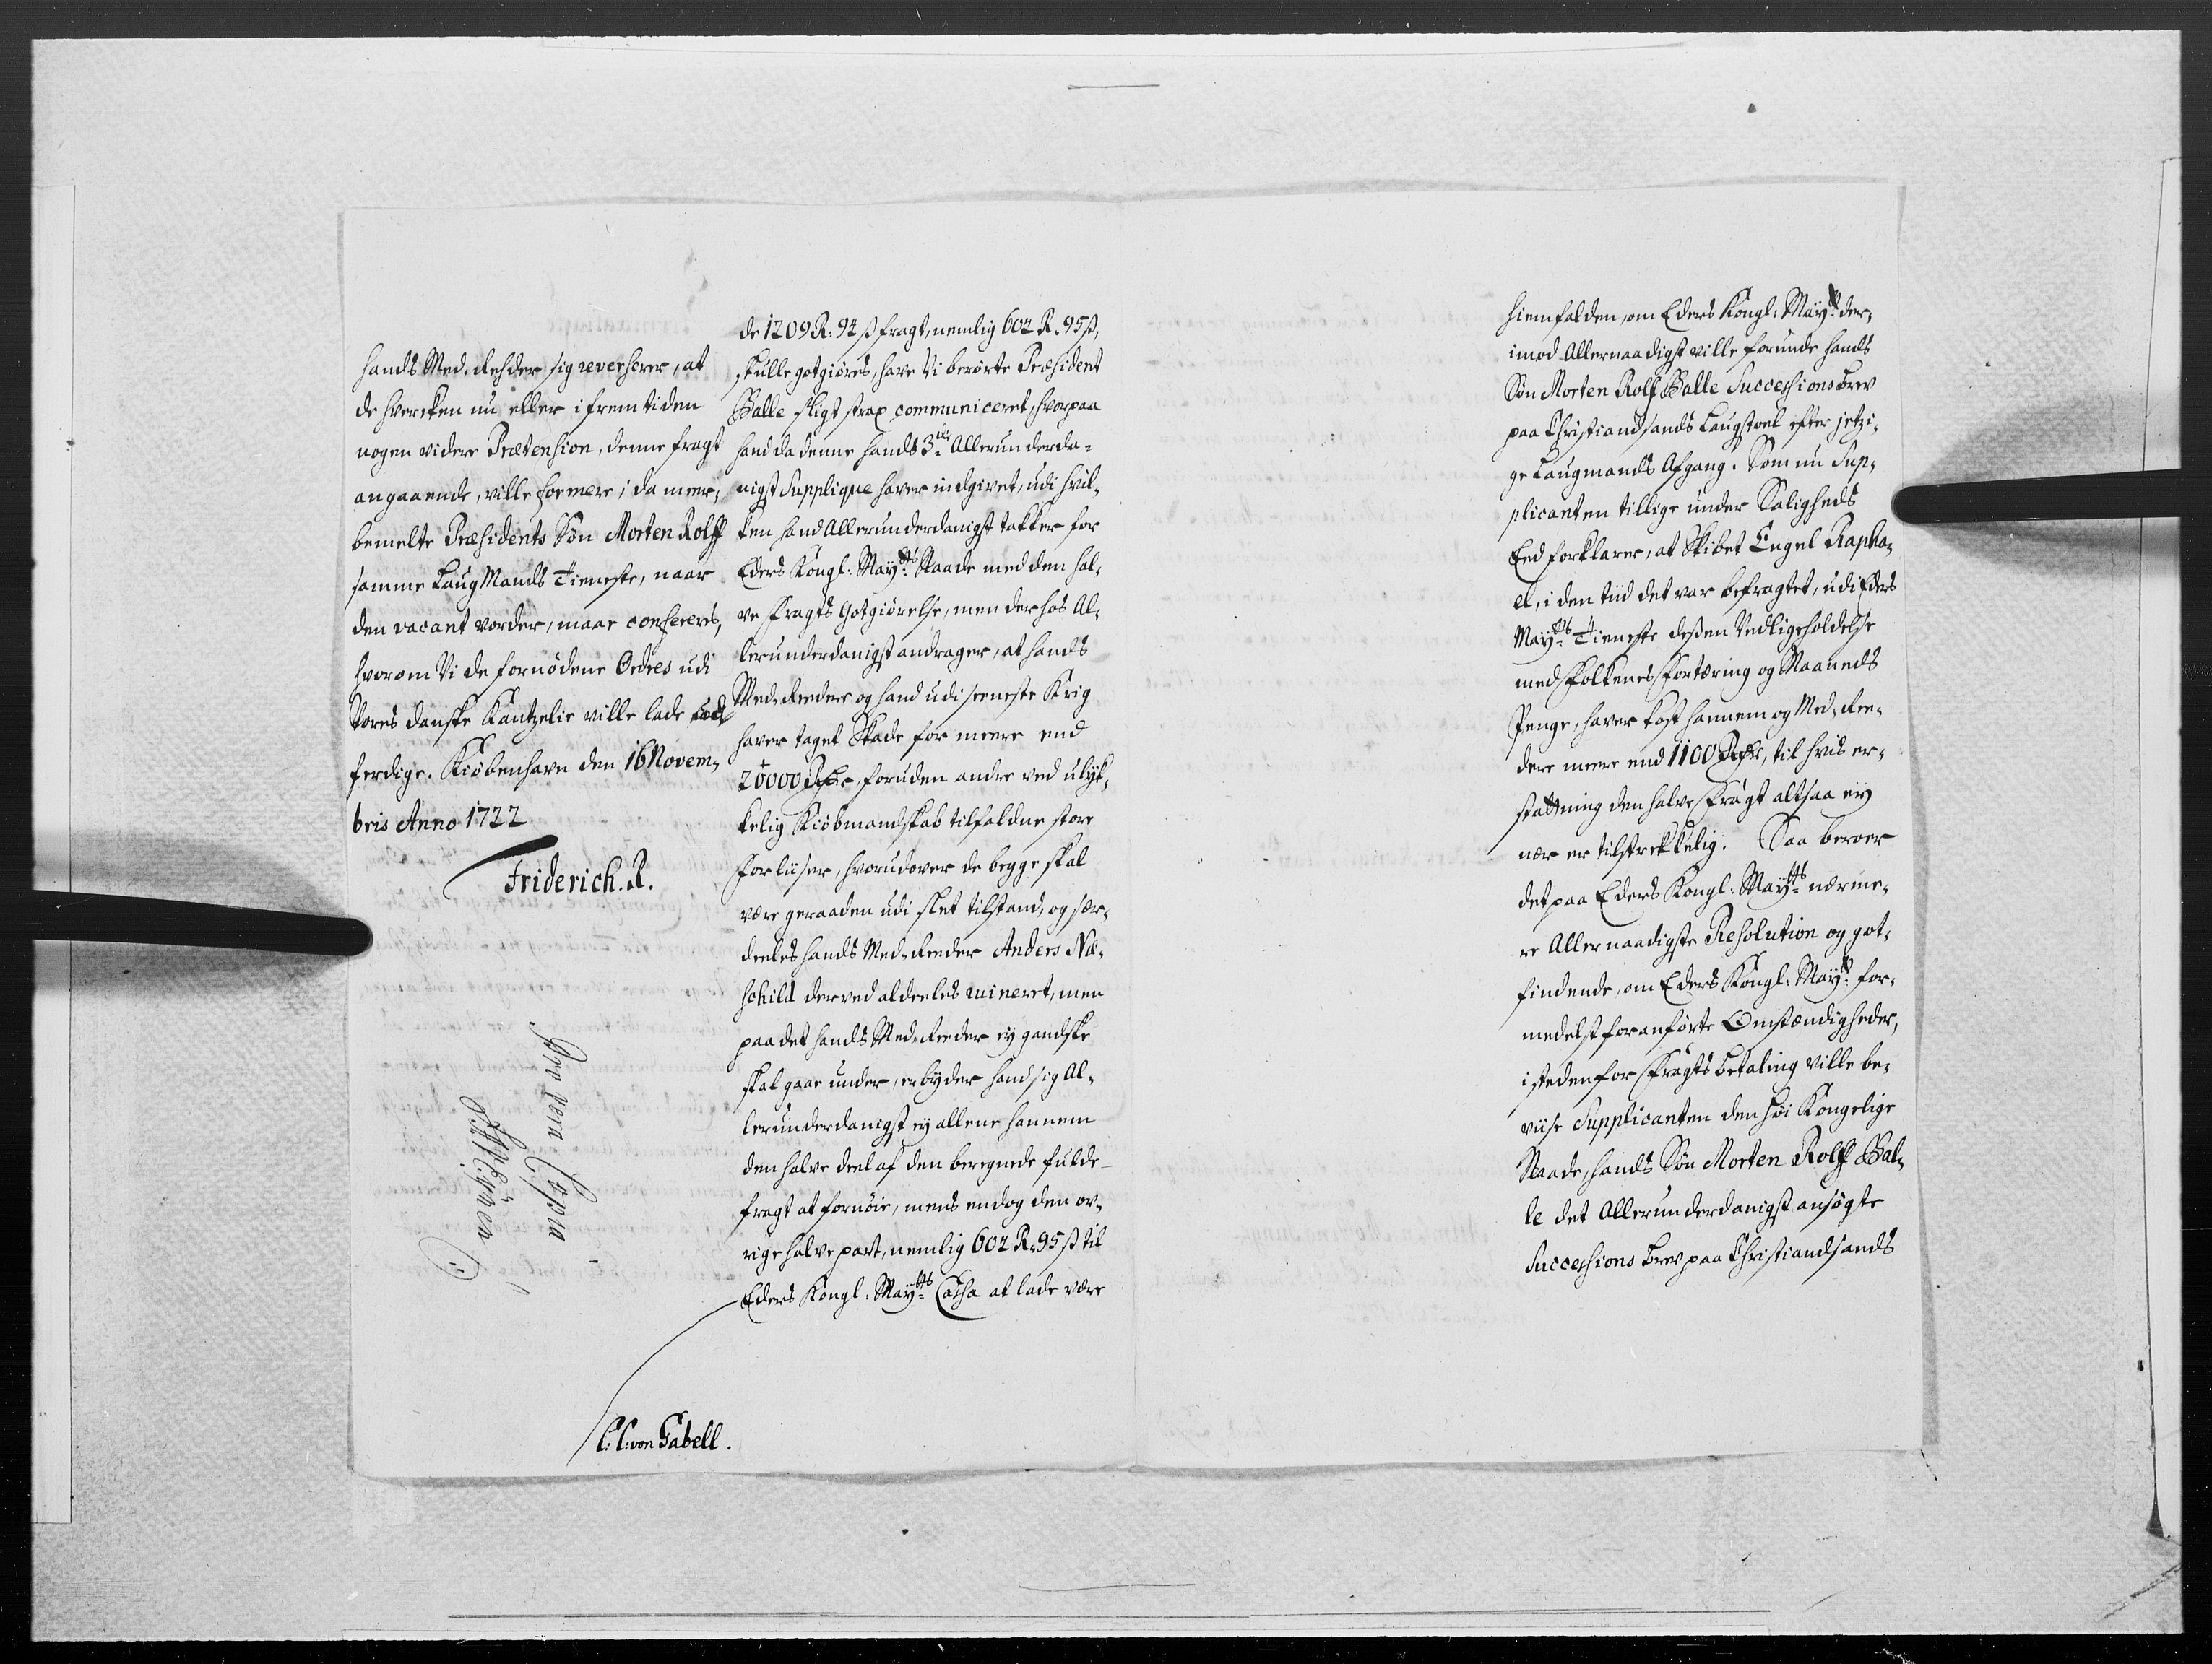 hands Med-Rehder sig reverserer, at
de hvercken nu eller i fremtiden
nogen videre Prætension, denne fragt
angaaende, ville formere; da meer,
bemelte Præsidents Søn Morten Rolff
samme LaugMands Tieneste, naar
den vacant vorder, maae confereres,
hvorom Vi de fornødene Ordres udi
Vores danske Kantzelie ville lade
ferdige. Kiøbenhavn den 16 Novem,
bris Anno 1722
Friderich. R.
Pro vera Copia
de 1209 R: 94 ß fragt, nemlig 602 R. 95 ß,
skulle gotgiøres, have Vi berørte Præsident
Balle sligt strax communiceret, hvorpaa
hand da denne hands 3de Allerunderda-
nigst Supplique haver indgivet, udi hvil,
ken hand Allerunderdanigst takker for
Eders Kongl: Mayts Naade med den hal,
ve fragts Gotgiørelse, men derhos Al,
lerunderdanigst andrager, at hands
Med-Reeder og hand udi seeneste Krig
haver taget Skade for meere end
20000 Rdr, foruden andre ved ulyk,
kelig Kiøbmandskab tilfaldne store
forliiser, hvorudover de begge skal
være geraaden udi slet tilstand, og sær,
deeles hands Med-Reeder Anders Næ,
schild derved aldeeles ruineret, men
paa det hands Med-Reeder ej gandske
skal gaae under, erbyder hand sig Al,
lerunderdanigst ej allene hannem
den halve deel af den beregnede fulde
fragt at fornøie, mens endog den øv,
rige halve part, nemlig 602 R. 95 ß til
Eders Kongl: Mayts Cassa at lade være
C: C: von Gabell.
hiemfalden, om Eders Kongl: Mayt der,
imod Allernaadigst ville forunde hands
Søn Morten Rolff Balle Successions brev
paa Christiandsands Laugstoel efter jetzi,
ge Laugmands Afgang. Som nu Sup,
plicanten tillige under Saligheds
Eed forklarer, at Skibet Engel Rapha,
el, i den tiid det var befragtet, udi Eders
Mayts Tieneste deßen Vedligeholdelse
med folkenes fortæring og Maaneds
Penge, haver kost hannem og Med-Ree,
dere meere end 1100 Rdr, til hvis er,
stattning den halve fragt altsaa ej
nær er tilstrekkelig. Saa beroer
det paa Eders Kongl: Mayts nærme,
re Allernaadigste Resolution og got,
findende, om Eders Kongl: Mayt for,
medelst foranførte Omstændigheder,
isteden for fragts betaling ville be,
viise Supplicanten den høi Kongelige
Naade, hands Søn Morten Rolff Bal,
le det Allerunderdanigst ansøgte
Successions brev paa Christiandsands